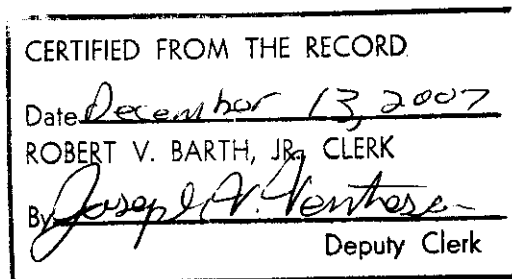 CERTIFIED FROM THE RECORD
Date December 13, 2007
ROBERT V. BARTH, JR., CLERK
By Joseph
Deputy Clerk